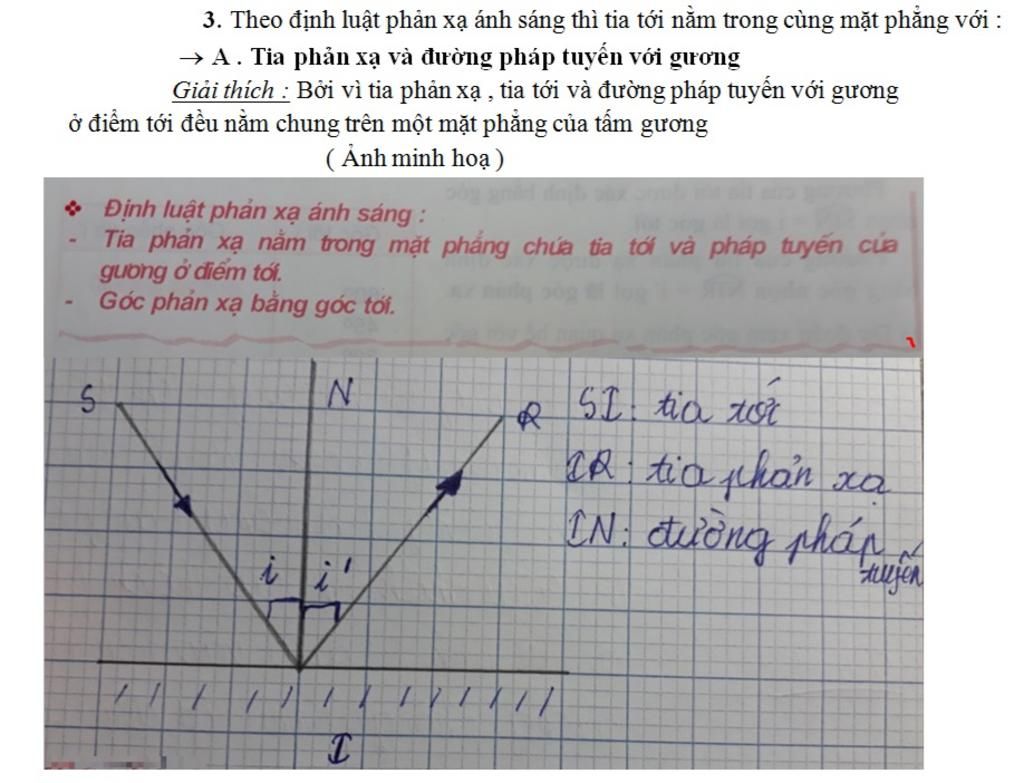 3. Theo định luật phản xạ ánh sáng thì tia tới nằm trong cùng mặt phẳng với :
→ A . Tia phản xạ và đường pháp tuyến với gương
Giải thích : Bởi vì tia phản xạ , tia tới và đường pháp tuyến với gương
ở điểm tới đều nằm chung trên một mặt phẳng của tấm gương
( Ảnh minh hoạ )
❖ Định luật phản xạ ánh sáng :
- Tia phản xạ nằm trong mặt phẳng chứa tia tới và pháp tuyến của
gương ở điểm tới.
- Góc phản xạ bằng góc tới.
S N R SI: tia tới
IR: tia phản xạ
IN: đường pháp
tuyến
i i'
I